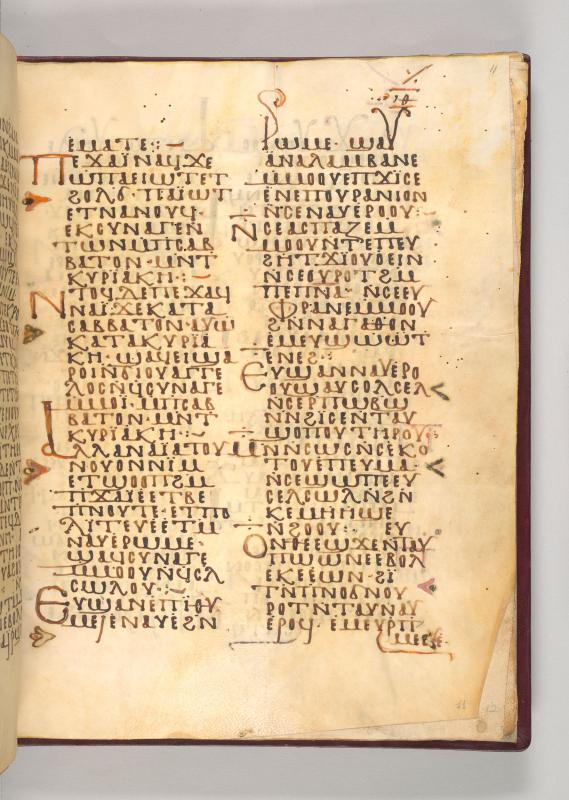 ⲉⲙⲁⲧⲉ:~
ⲡⲉϫⲁⲓ̈ⲛⲁϥϫⲉ
ⲱ̅ⲡⲁⲉⲓⲱⲧⲉⲧ
ⲉⲧⲛⲁⲛⲟⲩϥ·
ⲉⲕⲥⲩⲛⲁⲅⲉⲛ
ⲧⲱⲛⲙ̅ⲡⲥⲁⲃ
ⲃⲁⲧⲟⲛ·ⲙⲛ̅ⲧ
ⲕⲩⲣⲓⲁⲕⲏ:~
ⲛⲧⲟϥⲇⲉⲡⲉϫⲁϥ
ⲛⲁⲓ̈·ϫⲉⲕⲁⲧⲁ
ⲥⲁⲃⲃⲁⲧⲟⲛ·ⲁⲩⲱ
ⲕⲁⲧⲁⲕⲩⲣⲓⲁ
ⲕⲏ·ϣⲁϥⲉⲓϣⲁ
ⲣⲟⲓ
ⲗⲟⲥⲛϥ̅ⲥⲩⲛⲁⲅⲉ
ⲙ̅ⲙⲟⲓ̈·ⲙ̅ⲡⲥⲁⲃ
ⲃⲁⲧⲟⲛ·ⲙⲛ̅ⲧ
ⲕⲩⲣⲓⲁⲕⲏ:~
ⲁⲗⲗⲁⲛⲁⲓ̈ⲁⲧⲟⲩ
ⲛⲟⲩⲟⲛⲛⲓⲙ
ⲉⲧϣⲟⲟⲡϩⲙ
ⲡϫⲁⲓ̈ⲉⲉⲧⲃⲉ
ⲡⲛⲟⲩⲧⲉ·ⲉⲧⲡⲟ
ⲗⲓⲧⲉⲩⲉⲉⲧⲙ
ⲛⲁⲩⲉⲣⲱⲙⲉ·
ϣⲁϥⲥⲩⲛⲁⲅⲉ
ⲙ̅ⲙⲟⲟⲩⲛϥ̅ⲥⲗ
ⲥⲱⲗⲟⲩ:~
ⲉⲩϣⲁⲛⲉⲡⲓⲑⲩ
ⲙⲉⲓⲉⲛⲁⲩⲉϩⲛ
ⲣⲱⲙⲉ·ϣⲁⲩ
ⲁⲛⲁⲗⲁⲙⲃⲁⲛⲉ
ⲙ̅ⲙⲟⲟⲩⲉⲡϫⲓⲥⲉ
ⲉⲛⲉⲡⲟⲩⲣⲁⲛⲓⲟⲛ
ⲛ̅ⲥⲉⲛⲁⲩⲉⲣⲟⲟⲩ:
ⲛⲥⲉⲁⲥⲡⲁⲍⲉⲙ
ⲙⲟⲟⲩⲛⲧⲉⲡⲉⲩ
ϩⲏⲧ·ϫⲓⲟⲩⲟⲉⲓⲛ
ⲛ̅ⲥⲉⲟⲩⲣⲟⲧϩⲙ
ⲡⲉⲡⲛⲁ·ⲛ̅ⲥⲉⲉⲩ
ⲫⲣⲁⲛⲉⲙⲙⲟⲟⲩ
ϩⲛⲛⲁⲅⲁⲑⲟⲛ
ⲉⲙⲉⲩϣⲱⲱⲧ
ⲉⲛⲉϩ:
ⲉⲩϣⲁⲛⲛⲁⲩⲉⲣⲟ
ⲟⲩϣⲁⲩⲥⲟⲗⲥⲉⲗ
ⲛ̅ⲥⲉⲣⲡⲱⲃϣ
ⲛⲛ̅ϩⲓⲥⲉⲛⲧⲁⲩ
ϣⲟⲡⲟⲩⲧⲏⲣⲟⲩ:
ⲙⲛⲛ̅ⲥⲱⲥⲛ̅ⲥⲉⲕⲟ
ⲧⲟⲩⲉⲡⲉⲩⲙⲁ·
ⲛ̅ⲥⲉϣⲱⲡⲉⲉⲩ
ⲥⲉⲗⲥⲱⲗϩⲛ
ⲕⲉⲙⲏⲏϣⲉ
ⲛ̅ϩⲟⲟⲩ: ⲉⲩ
ⲟⲛⲑⲉⲉϣϫⲉⲛⲧⲁⲩ
ⲡⲱⲱⲛⲉⲉⲃⲟⲗ
ⲉⲕⲉⲉⲱⲛ·ϩⲓ
ⲧⲛⲡⲛⲟϭⲛⲟⲩ
ⲣⲟⲧⲛⲧⲁⲩⲛⲁⲩ
ⲉⲣⲟϥ·ⲉⲙⲉⲩⲣⲡ
ⲙⲉⲉ